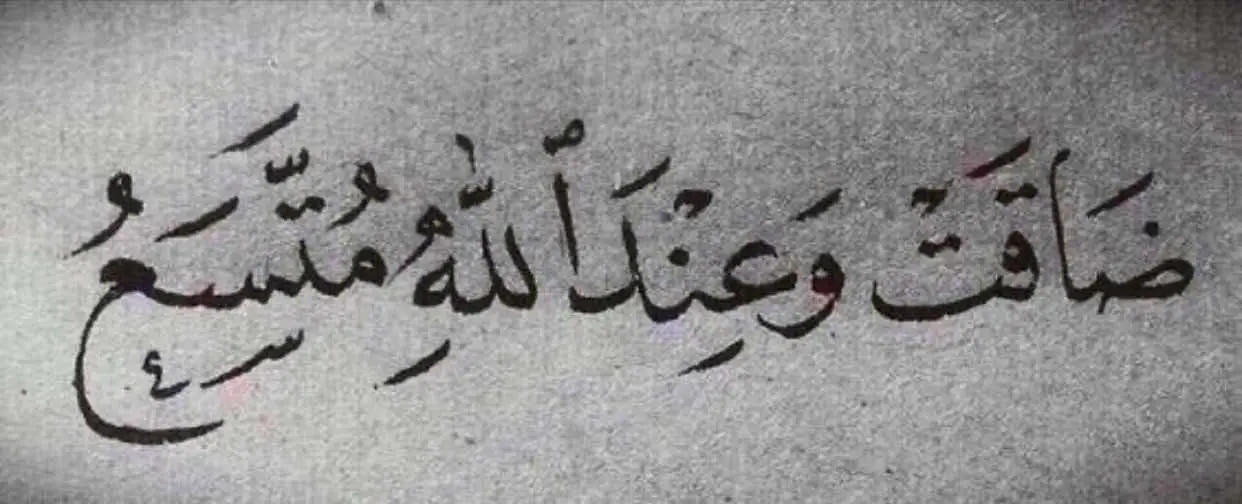 ضَاقَتْ وَعِنْدَ ٱللَّهِ مُتَّسَعُ